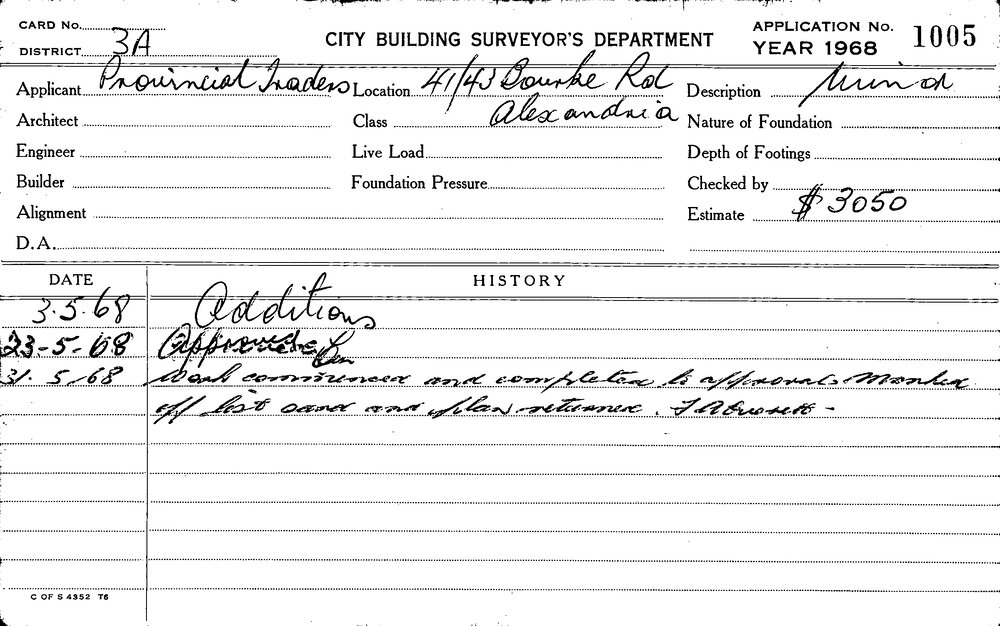 CARD No.
DISTRICT 3A
CITY BUILDING SURVEYOR'S DEPARTMENT
APPLICATION No. 1005
YEAR 1968
Applicant Provincial Traders Location 41/43 Bourke Rd Description Minor
Alexandria
Architect Class Nature of Foundation
Engineer Live Load Depth of Footings
Builder Foundation Pressure Checked by
Alignment Estimate $3050
D.A.
DATE HISTORY
3.5.68 Additions
23-5-68 Approved
31.5/68 Work commenced and completed to approval. Marked
off list card and plan returned.
C OF S 4352 76